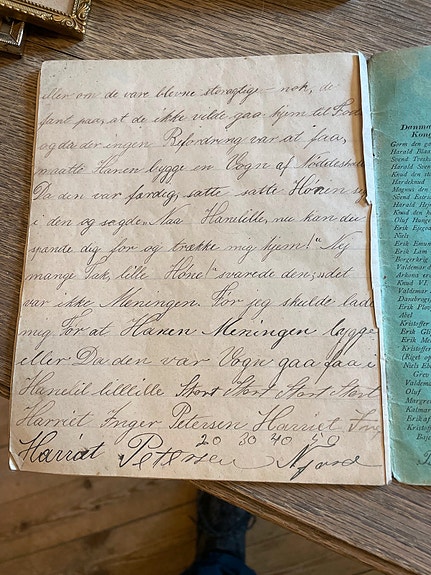 eller om de vare blevne storagtige – nok, de
fant paa, at de ikke vilde gaa hjem til Fods
og da der ingen Befordring var at faa,
maatte Hanen bygge en Vogn af Nøddeskal
Da den var færdig, satte satte Hønen
i den og sagde: Naa Hanelille, nu kan du
spænde dig for og trække mig hjem!" Nej
mange Tak, lille Høne!" svarede den; "det
var ikke Meningen. For jeg skulde lade
mig For at Hanen Meningen bygge
eller Da den var Vogn gaa faa i
Hanelil lillille Stort Stort Stort Stort
Harriet Inger Petersen Harriet Ing
20 30 40 50
Harriet Petersen
Danma
Kong
Gorm den ga
Harald Blaa
Svend Tvesk
Harald Sven
Knud den st
Hardeknud
Magnus den
Svend Estri
Harald Hej
Knud den h
Oluf Hunge
Erik Ejego
Niels
Erik Emun
Erik Lam
Borgerkrig
Valdemar d
Arkona ero
Knud VI
Valdemar
Dannebrog
Erik Plov
Abel
Kristoffer
Erik Gli
Erik Me
Kristoffe
(Riget op
Niels Eb
Grev
Valdema
Oluf
Margre
Kalmar
Erik af
Kristoff
Baje